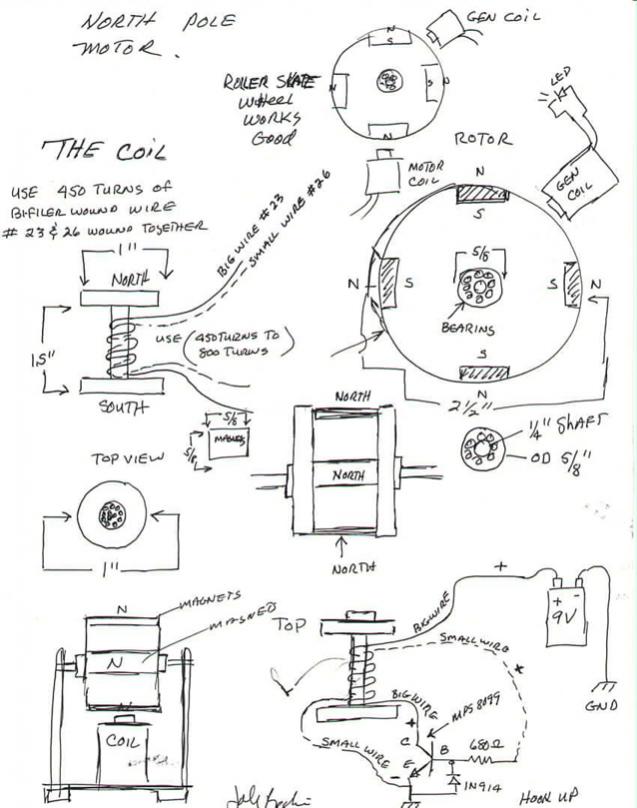 NORTH POLE
MOTOR.
GEN COIL
N
S
N
S
N
N
ROLER SKATE
WHEEL
WORKS
GOOD
LED
ROTOR
GEN
COIL
MOTOR
COIL
THE COIL
USE 450 TURNS OF
BIFILER WOUND WIRE
# 23 & 26 WOUND TOGETHER
1"
BIG WIRE #23
SMALL WIRE #26
NORTH
1.5"
USE (450 TURNS TO
800 TURNS)
SOUTH
N
S
5/8
N
S
S
N
BEARING
S
N
2 1/2"
5/8
MAGNET
5/8
NORTH
NORTH
NORTH
1/4" SHAFT
OD 5/8"
TOP VIEW
1"
N
MAGNETS
MAGNETS
N
N
COIL
TOP
+
BIG WIRE
SMALL WIRE
+ -
9V
GND
BIG WIRE
+
MPS8099
SMALL WIRE
C
B
680Ω
E
-
1N914
HOOK UP